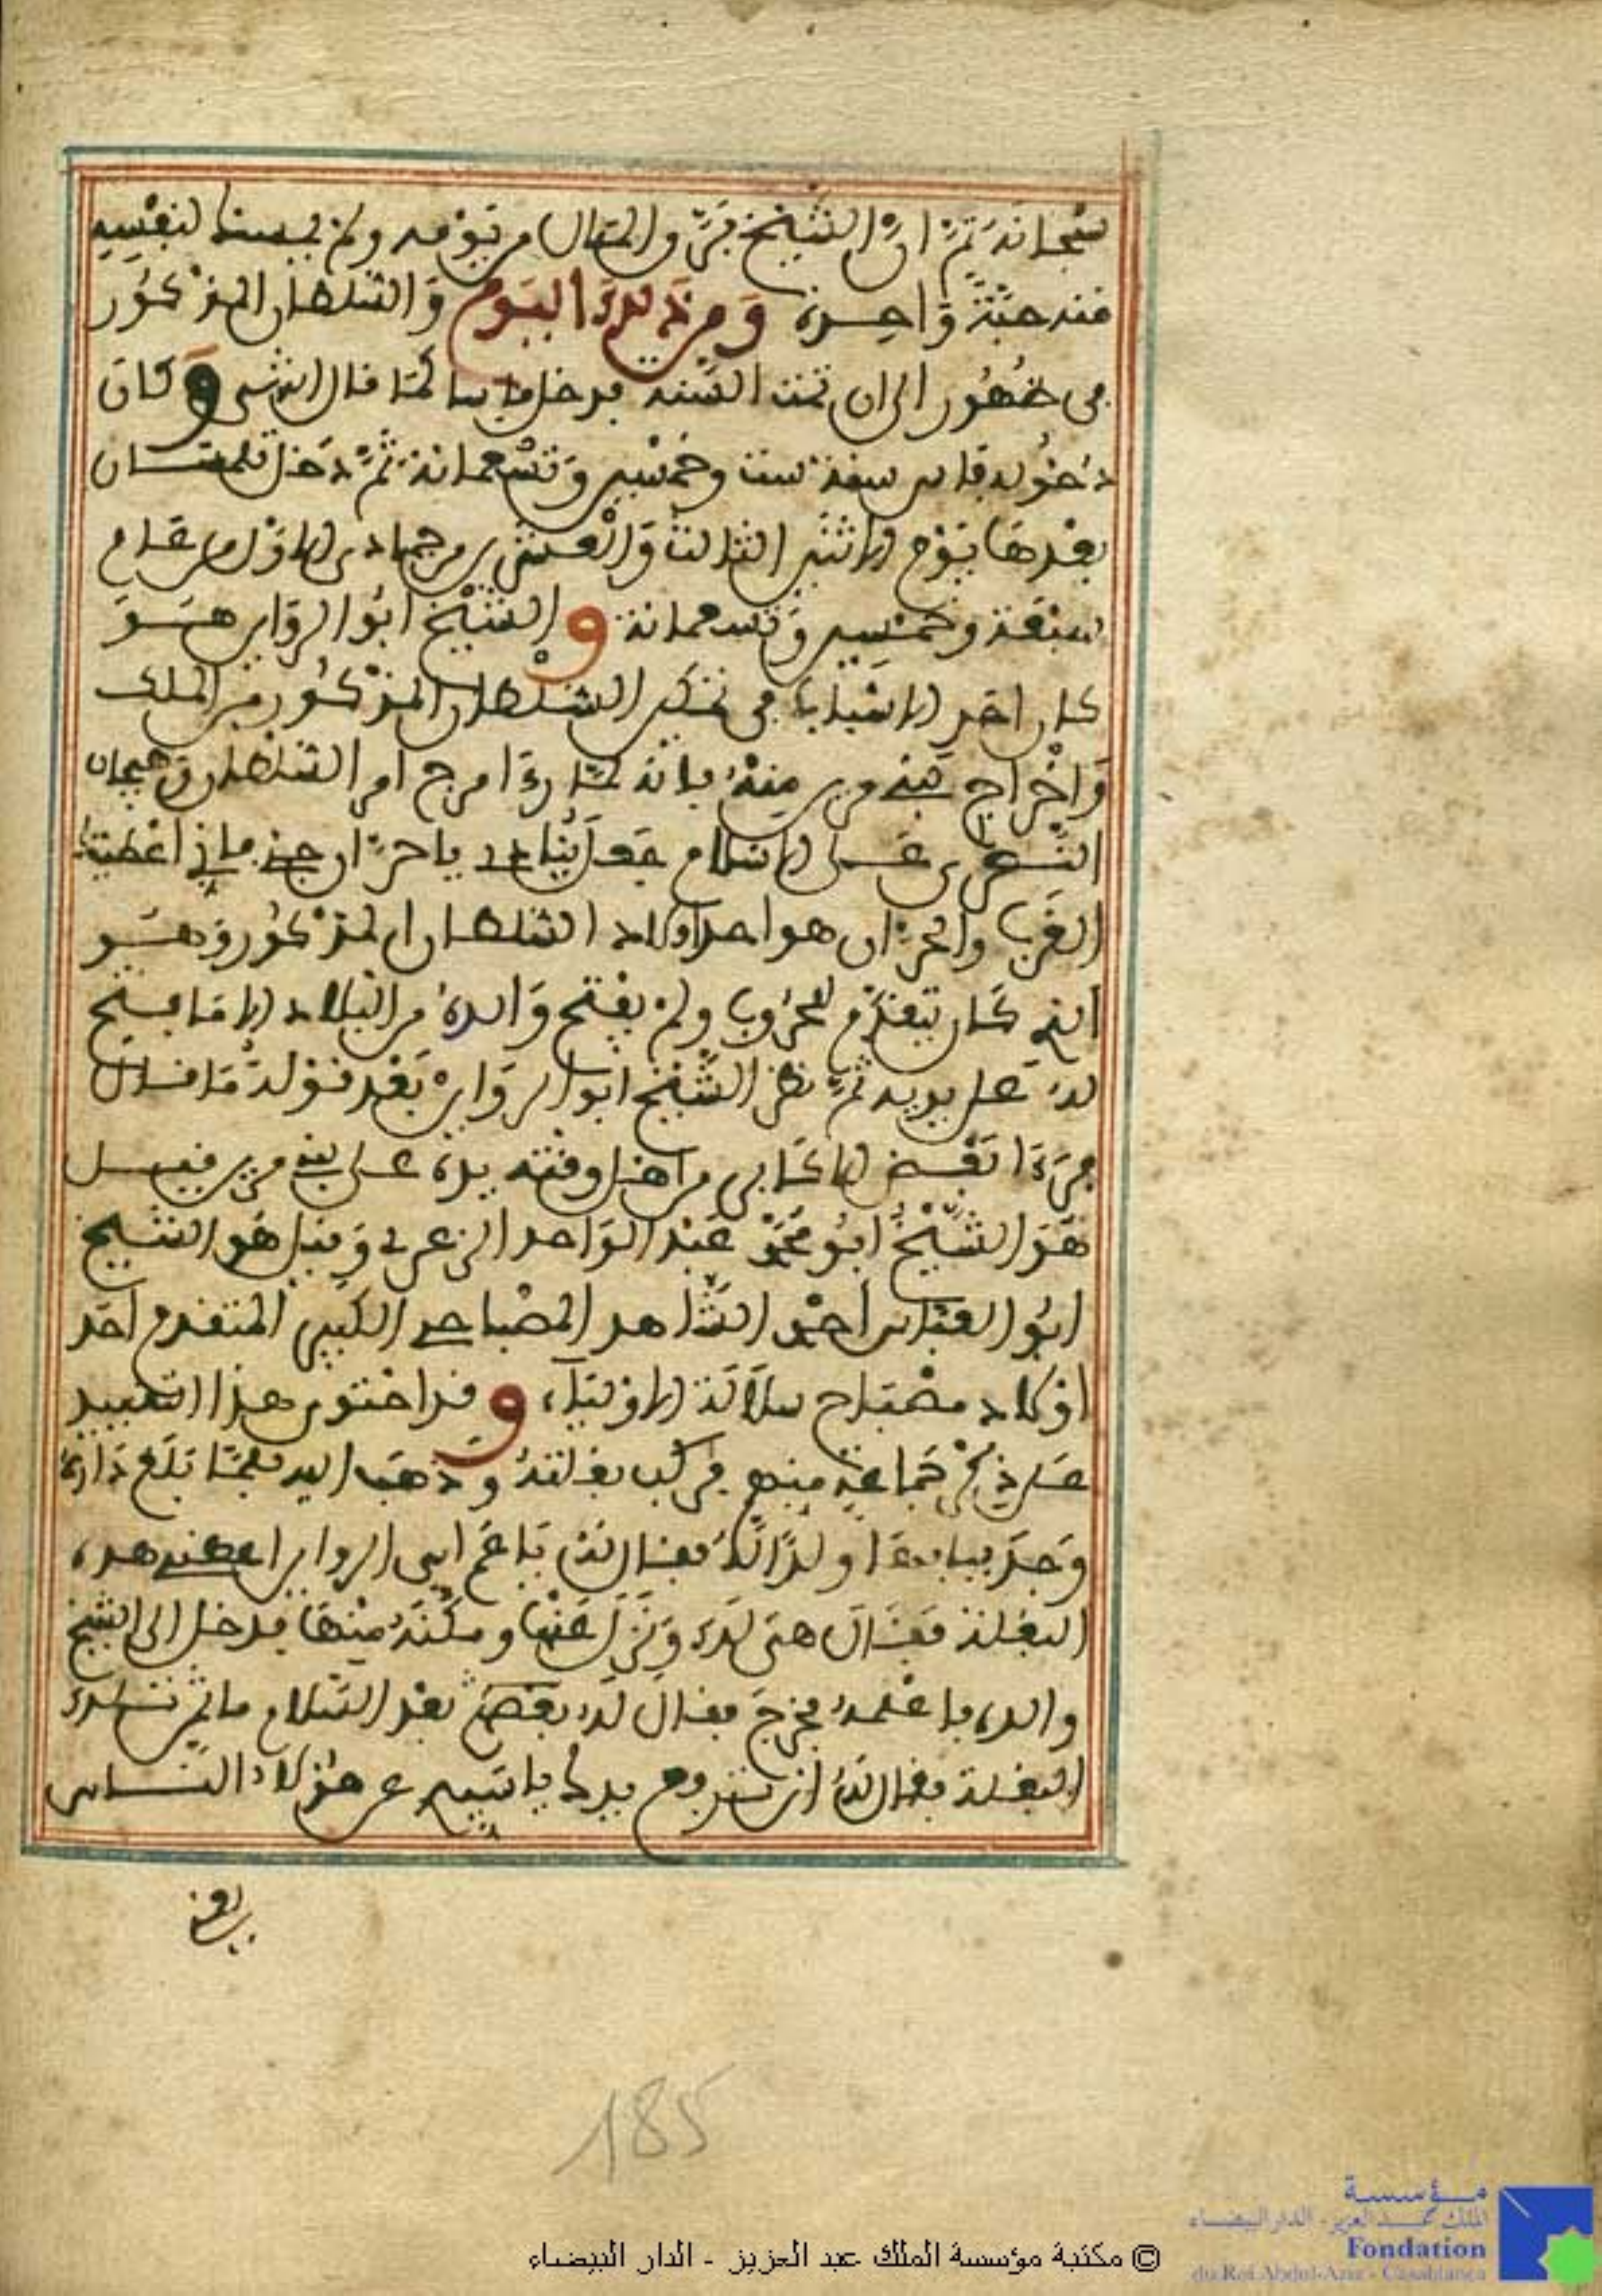 سبحانه ثم ان الشيخ فرق المال من يومه ولم يمسك لنفسه
منه حبة واحدة ومن ذلك اليوم والسلطان المذكور
في ظهور الى ان تمت السنة فدخل فاسا كما قال الشيخ وكان
دخوله فاس سنة ست وخمسين وتسعمائة ثم دخل تلمسان
بعدها يوم الاثنين الثالث والعشرين من جمادى الاولى من عام
سبعة وخمسين وتسعمائة والشيخ ابو الرواين هو
كان احد الاسباب في تمكين السلطان المذكور من الملك
واخراج بني مرين منه فانه لما رءا مرج امر السلطان وهيجان
النصارى على الاسلام جعل ينادي يا حران جئ فاني اعطيتك
الغرب والحران هو احد اولاد السلطان المذكور وهو
الذي كان يتقدم للحروب ولم يفتح والده من البلاد الا ما فتح
له على يديه ثم نظر الشيخ ابو الروايين بعد قوله ما قال
فرءا بعض الاكابر من اهل وقته يده على بني مرين فقيل
هو الشيخ ابو محمد عبد الواحد الزعري وقيل هو الشيخ
ابو العباس احمد الشاهد المصباحي الكبير المتقدم احد
اولاد مصباح سلالة الاولياء وقد احتوى هذا التقييد
على ذكر جماعة منهم فركب بغلته وذهب اليه فلما بلغ داره
وجد ببابها ولدا له فقال له يا عم ابي الرواين اعطني هذه
البغلة فقال هي لك ونزل عنها ومكنه منها فدخل الى الشيخ
والده فاعلمه فخرج فقال له بعض بعد السلام ما ثمن تلك
البغلة فقال له ان ترفع يدك يا سيدي عن هؤلاء الناس
يعني
185
© مكتبة مؤسسة الملك عبد العزيز - الدار البيضاء
مؤسسة
الملك عبد العزيز - الدار البيضاء
Fondation
du Roi Abdul-Aziz - Casablanca